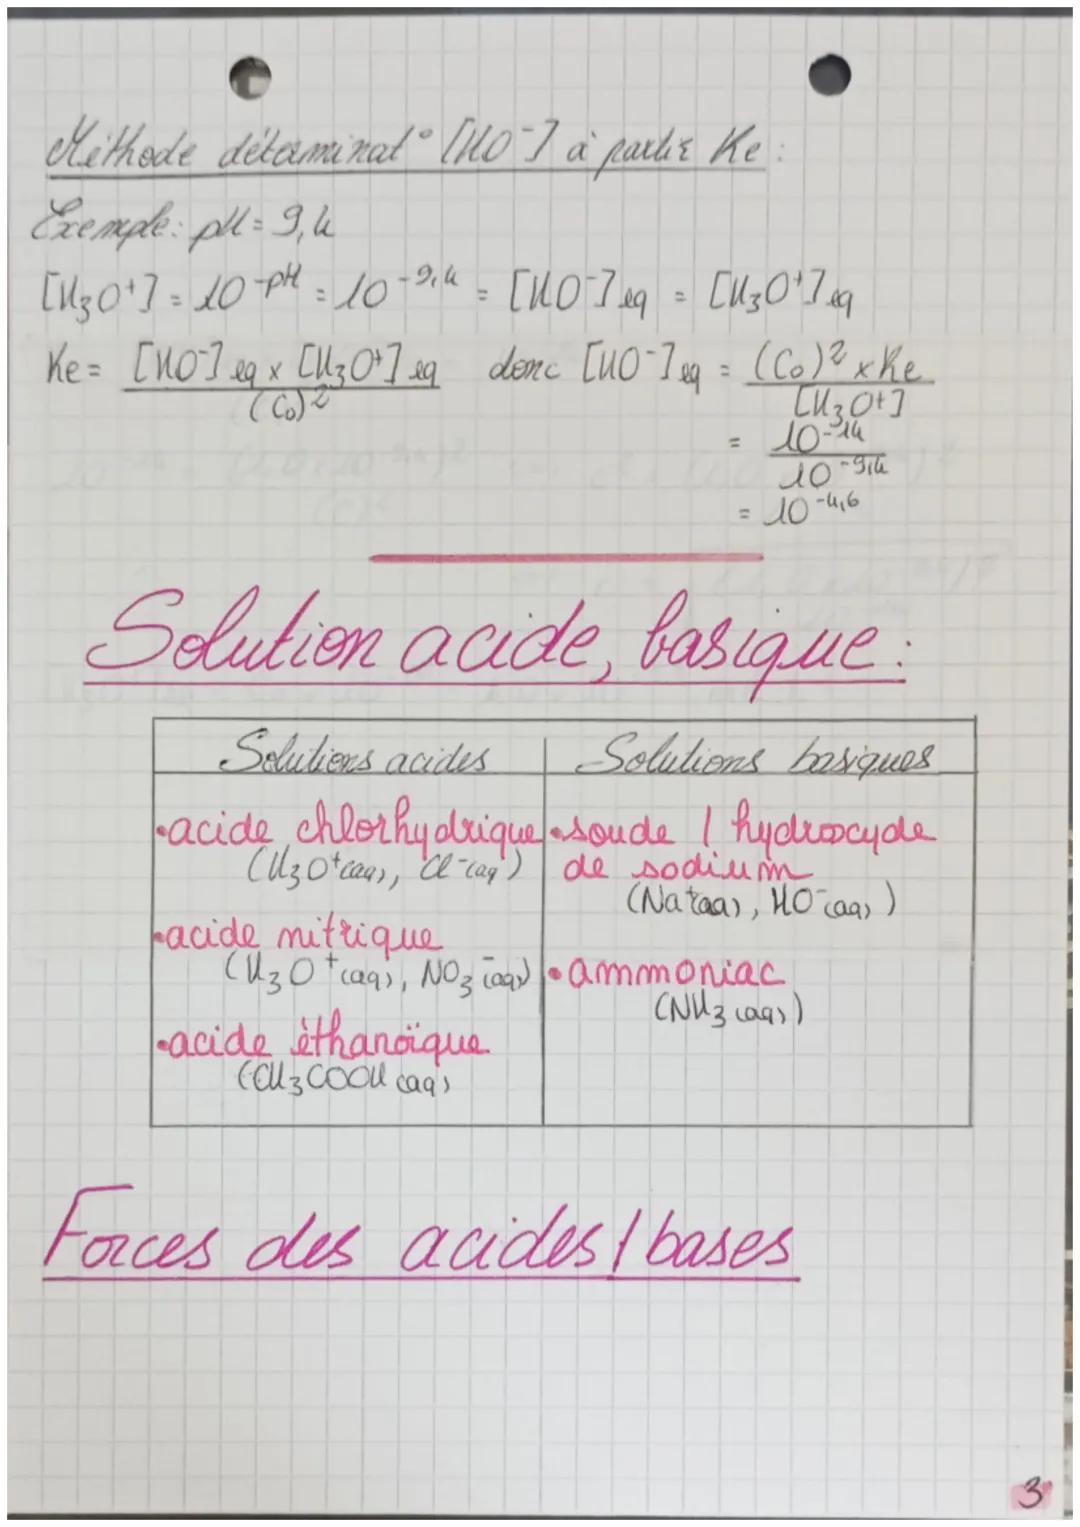 Méthode déterminat° [HO⁻] à partir Ke :
Exemple : pH = 9,4
[H₃O⁺] = 10^-pH = 10^-9,4 = [HO⁻]eq = [H₃O⁺]eq
Ke = [HO⁻]eq x [H₃O⁺]eq / (C₀)² donc [HO⁻]eq = (C₀)² x Ke / [H₃O⁺]
= 10^-14 / 10^-9,4
= 10^-4,6
Solution acide, basique :
Solutions acides
Solutions basiques
•acide chlorhydrique
(H₃O⁺(aq), Cl⁻(aq))
•acide nitrique
(H₃O⁺(aq), NO₃⁻(aq))
•acide éthanoïque
(CH₃COOH(aq)
•soude / hydroxyde
de sodium
(Na⁺(aq), HO⁻(aq))
•ammoniac
(NH₃(aq))
Forces des acides / bases
3